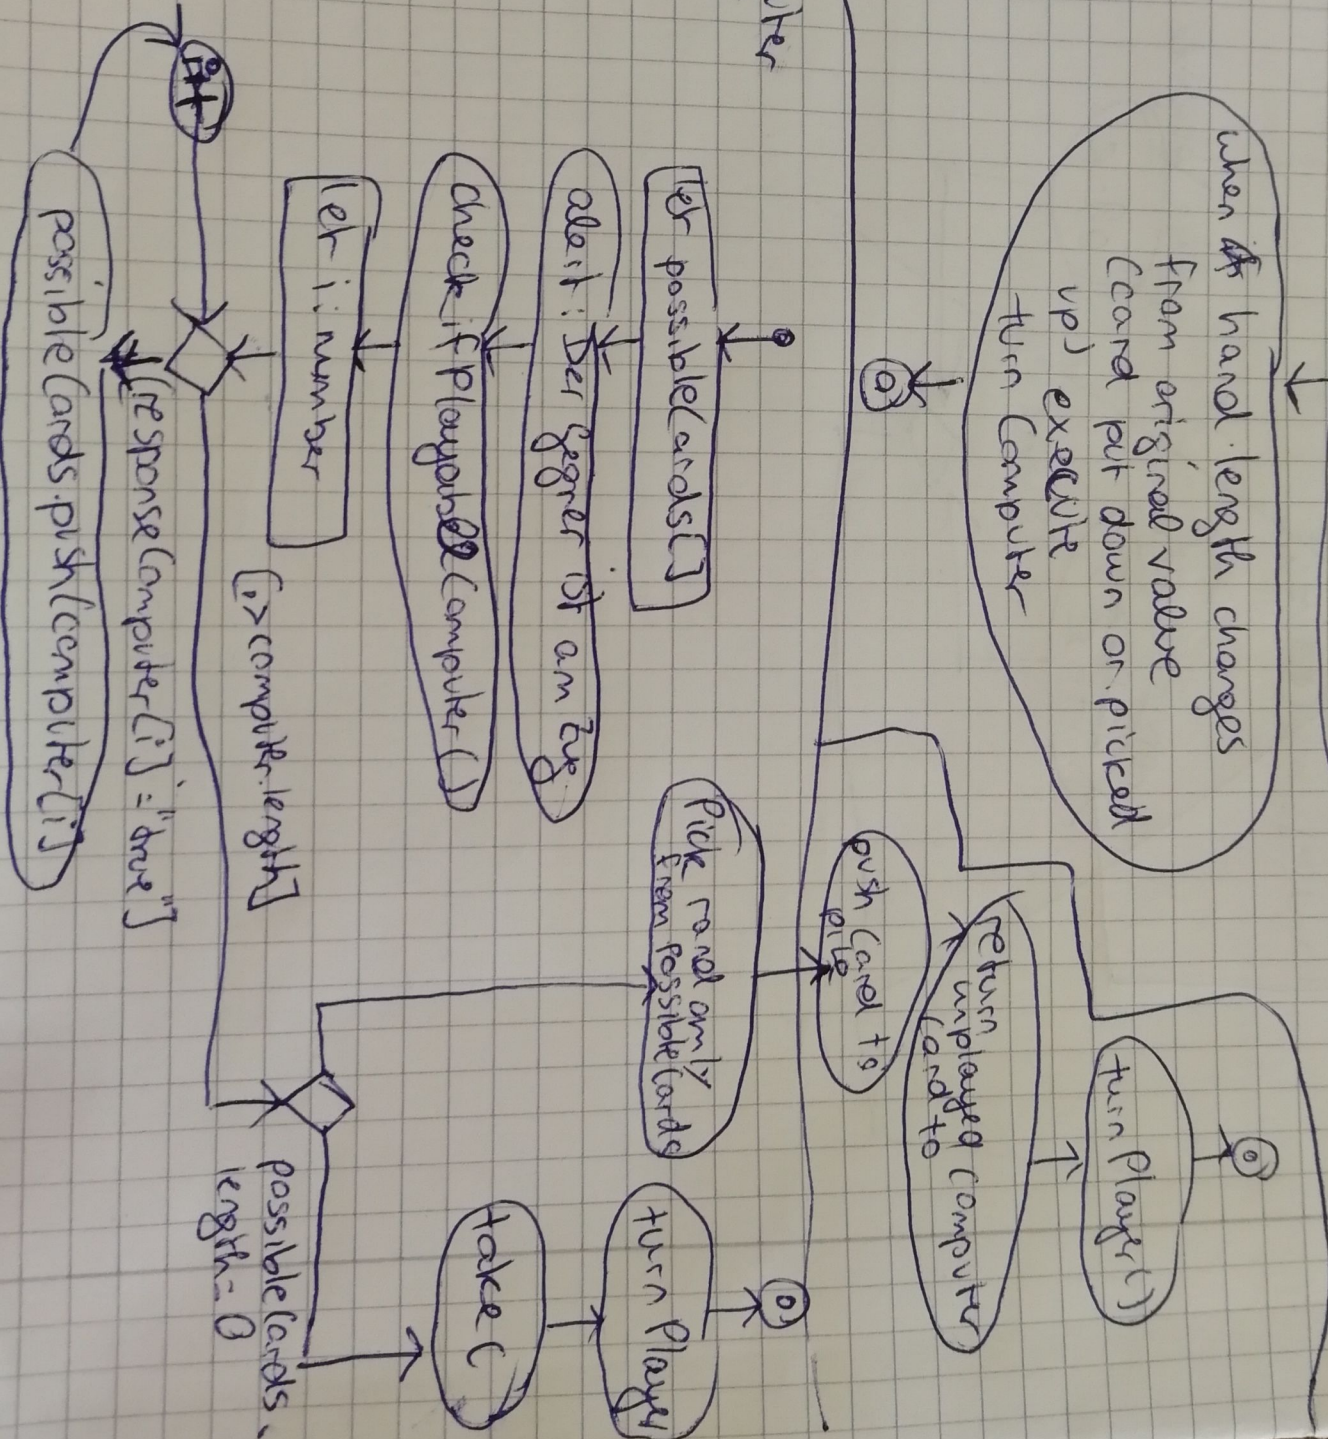 when hand.length changes
from original value
(card put down or picked
up) execute
turn Computer
let possibleCards[]
alert: Der Gegner ist am Zug
check if playable Computer()
let i: number
[i>computer.length]
[responseComputer[i] = "true"]
possibleCards.push(computer[i]
possibleCards.
length = 0
Pick randomly
from possibleCards
push Card to
pile
return
unplayed Computer
Card to
turnPlayer()
take(
turnPlayer